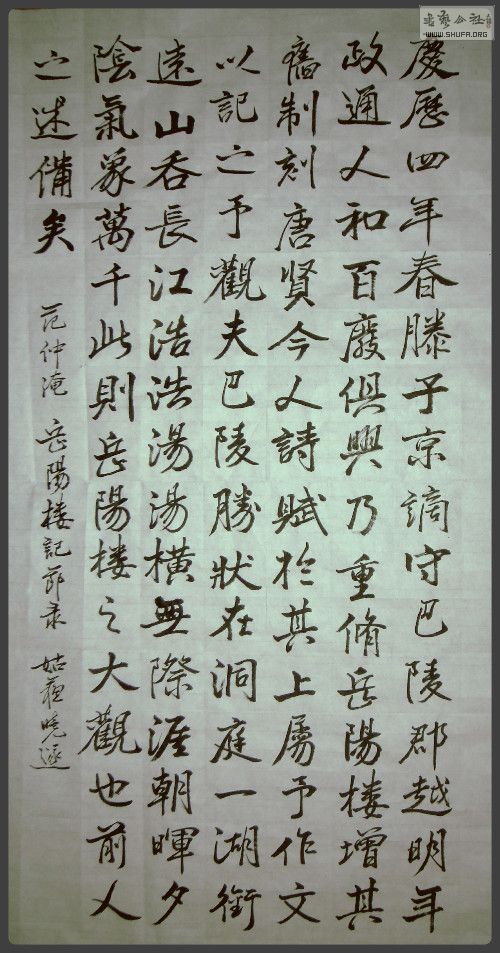 慶歷四年春滕子京謫守巴陵郡越明年
政通人和百廢俱興乃重脩岳陽楼增其
舊制刻唐賢今人詩賦於其上屬予作文
以記之予觀夫巴陵勝狀在洞庭一湖銜
遠山吞長江浩浩湯湯橫無際涯朝暉夕
陰氣象萬千此則岳陽楼之大觀也前人
之述備矣
范仲淹 岳陽楼記節录 姑蘇曉逐
书艺公社
WWW.SHUFA.ORG